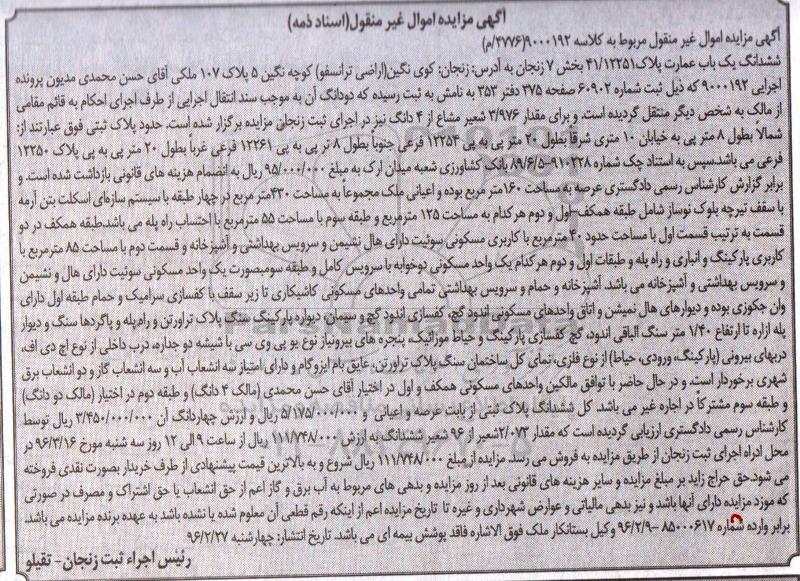 آگهی مزایده اموال غیر منقول(اسناد ذمه)
آگهی مزایده اموال غیر منقول مربوط به کلاسه ۹۰۰۰۱۹۲(۳۷۷۶/م)
ششدانگ یک باب عمارت پلاک۴۱/۱۲۲۵۱ بخش ۷ زنجان به آدرس: زنجان: کوی نگین(اراضی ترانسفو) کوچه نگین ۵ پلاک ۱۰۷ ملکی آقای حسن محمدی مدیون پرونده
اجرایی ۹۰۰۰۱۹۲ که ذیل ثبت شماره ۶۰۹۰۲ صفحه ۳۷۵ دفتر ۳۵۳ به نامش به ثبت رسیده که دودانگ آن به موجب سند انتقال اجرایی از طرف اجرای احکام به قائم مقامی
از مالک به شخص دیگر منتقل گردیده است. و برای مقدار ۳/۹۷۶ شعیر مشاع از ۴ دانگ نیز در اجرای ثبت زنجان مزایده برگزار شده است. حدود پلاک ثبتی فوق عبارتند از:
شمالا بطول ۸ متر پی به خیابان ۱۰ متری شرقا بطول ۲۰ متر پی به پی ۱۲۲۵۲ فرعی جنوباً بطول ۸ تر پی به پی ۱۲۲۶۱ فرعی غرباً بطول ۲۰ متر پی به پی پلاک ۱۲۲۵۰
فرعی می باشد.سپس به استناد چک شماره ۹۱۰۲۲۸–۸۹/۶/۵ بانک کشاورزی شعبه میدان ارک به مبلغ ۹۵/۰۰۰/۰۰۰ ریال به انضمام هزینه های قانونی بازداشت شده است. و
برابر گزارش کارشناس رسمی دادگستری عرصه به مساحت ۱۶۰متر مربع بوده و اعیانی ملک مجموعاً به مساحت ۴۳۰متر مربع در چهار طبقه با سیستم سازه‌ای اسکلت بتن آرمه
با سقف تیرچه بلوک نوساز شامل طبقه همکف–اول و دوم هرکدام به مساحت ۱۲۵ مترمربع و طبقه سوم با مساحت ۵۵ مترمربع با احتساب راه پله می باشد.طبقه همکف در دو
قسمت به ترتیب قسمت اول با مساحت حدود ۴۰مترمربع با کاربری مسکونی سوئیت دارای هال نشیمن و سرویس بهداشتی و آشپزخانه و قسمت دوم با مساحت ۸۵ مترمربع با
کاربری پارکینگ و انباری و راه پله و طبقات اول و دوم هرکدام یک واحد مسکونی دوخوابه با سرویس کامل و طبقه سومبصورت یک واحد مسکونی سوئیت دارای هال و نشیمن
و سرویس بهداشتی و آشپزخانه می باشد. آشپزخانه و حمام و سرویس بهداشتی تمامی واحدهای مسکونی کاشیکاری تا زیر سقف با کفسازی سرامیک و حمام طبقه اول دارای
وان جکوزی بوده و دیوارهای هال نمیشن و اتاق واحدهای مسکونی اندود گچ، کفسازی اندود گچ و سیمان دیواره پارکینگ سنگ پلاک تراورتن و راه پله و پاگردها سنگ و دیوار
پله ازاره تا ارتفاع ۱/۴۰ متر سنگ الباقی اندود، گچ کفسازی پارکینگ و حیاط موزائیک، پنجره های بیرونیاز نوع یو پی وی سی با شیشه دو جداره، درب داخلی از نوع اچ دی اف،
دربهای بیرونی (پارکینگ، ورودی، حیاط) از نوع فلزی، نمای کل ساختمان سنگ پلاک تراورتن، عایق بام ایزوگام و دارای امتیاز سه انشعاب آب و سه انشعاب گاز و دو انشعاب برق
شهری برخوردار است. و در حال حاضر با توافق مالکین واحدهای مسکونی همکف و اول در اختیار آقای حسن محمدی (مالک ۴ دانگ) و طبقه دوم در اختیار (مالک دو دانگ)
و طبقه سوم مشترکاً در اجاره غیر می باشد. کل ششدانگ پلاک ثبتی از بابت عرصه و اعیانی و ۵/۱۷۵/۰۰۰/۰۰۰ ریال و ارزش چهاردانگ آن ۳/۴۵۰/۰۰۰/۰۰۰ ریال توسط
کارشناس رسمی دادگستری ارزیابی گردیده است که مقدار ۲/۰۷۳شعیر از ۹۶ شعیر ششدانگ به ارزش ۱۱۱/۷۴۸/۰۰۰ ریال از ساعت ۹ الی ۱۲ روز سه شنبه مورخ ۹۶/۳/۱۶ در
محل ادراه اجرای ثبت زنجان از طریق مزایده به فروش می رسد. مزایده از مبلغ ۱۱۱/۷۴۸/۰۰۰ ریال شروع و به بالاترین قیمت پیشنهادی از طرف خریدار بصورت نقدی فروخته
می شود.حق حراج زاید بر مبلغ مزایده و سایر هزینه های قانونی بعد از روز مزایده و بدهی های مربوط به آب برق و گاز اعم از حق انشعاب یا حق اشتراک و مصرف در صورتی
که مورد مزایده دارای آنها باشد و نیز بدهی مالیاتی و عوارض شهرداری و غیره تا تاریخ مزایده اعم از اینکه رقم قطعی آن معلوم شده یا نشده باشد به عهده برنده مزایده می باشد.
برابر وارده شماره ۸۵۰۰۰۶۱۷ –۹۶/۲/۹ وکیل بستانکار ملک فوق الاشاره فاقد پوشش بیمه ای می باشد. تاریخ انتشار: چهارشنبه ۹۶/۲/۲۷
رئیس اجراء ثبت زنجان- تقیلو